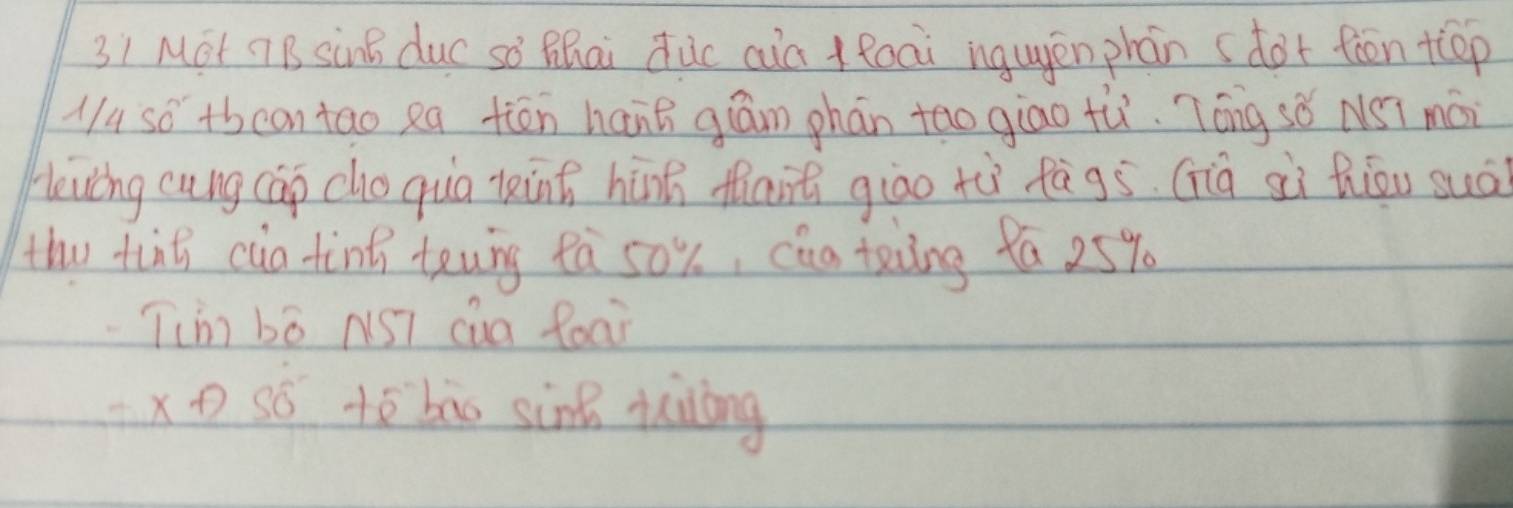 3) Một TB sinh dục sơ khai đực của 1 loài nguyên phân 5 đợt liên tiếp
1/4 số tb con tạo ra tiến hành giảm phân tạo giao tử. Tổng số NST môi
trường cung cấp cho quá trình hình thành giao tử là 95. Giả sử hiệu suất
thụ tinh của tinh trùng là 50%, của trứng là 25%
- Tìm bộ NST của loài
- XĐ số tế bào sinh trứng